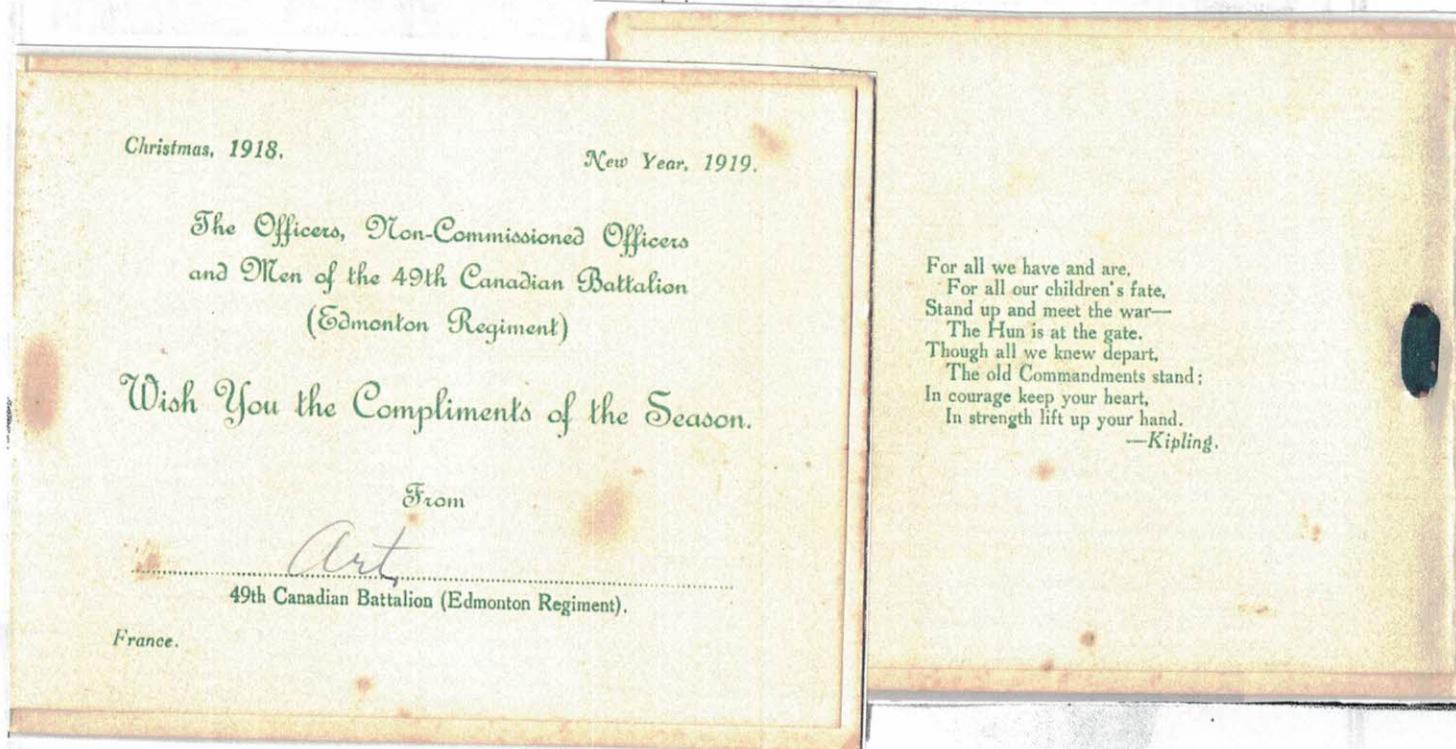 Christmas, 1918.
New Year, 1919.
The Officers, Non-Commissioned Officers
and Men of the 49th Canadian Battalion
(Edmonton Regiment)
Wish You the Compliments of the Season.
From
Art.
49th Canadian Battalion (Edmonton Regiment).
France.
For all we have and are,
For all our children's fate,
Stand up and meet the war—
The Hun is at the gate.
Though all we knew depart,
The old Commandments stand;
In courage keep your heart,
In strength lift up your hand.
—Kipling.